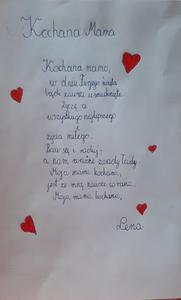 Kochana Mama
Kochana mamo,
w dniu Twego święta
bądź zawsze uśmiechnięta.
Życzę a
wszystkiego najlepszego
i
życia miłego.
Baw się i raduj,
a nam zawsze
Moja mama kochana,
jest ze mną zawsze od rana.
Moja mama kochana,
Lena